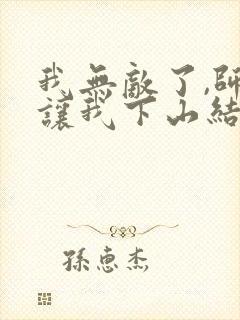 我無敵了,師
讓我下山結
孫惠杰